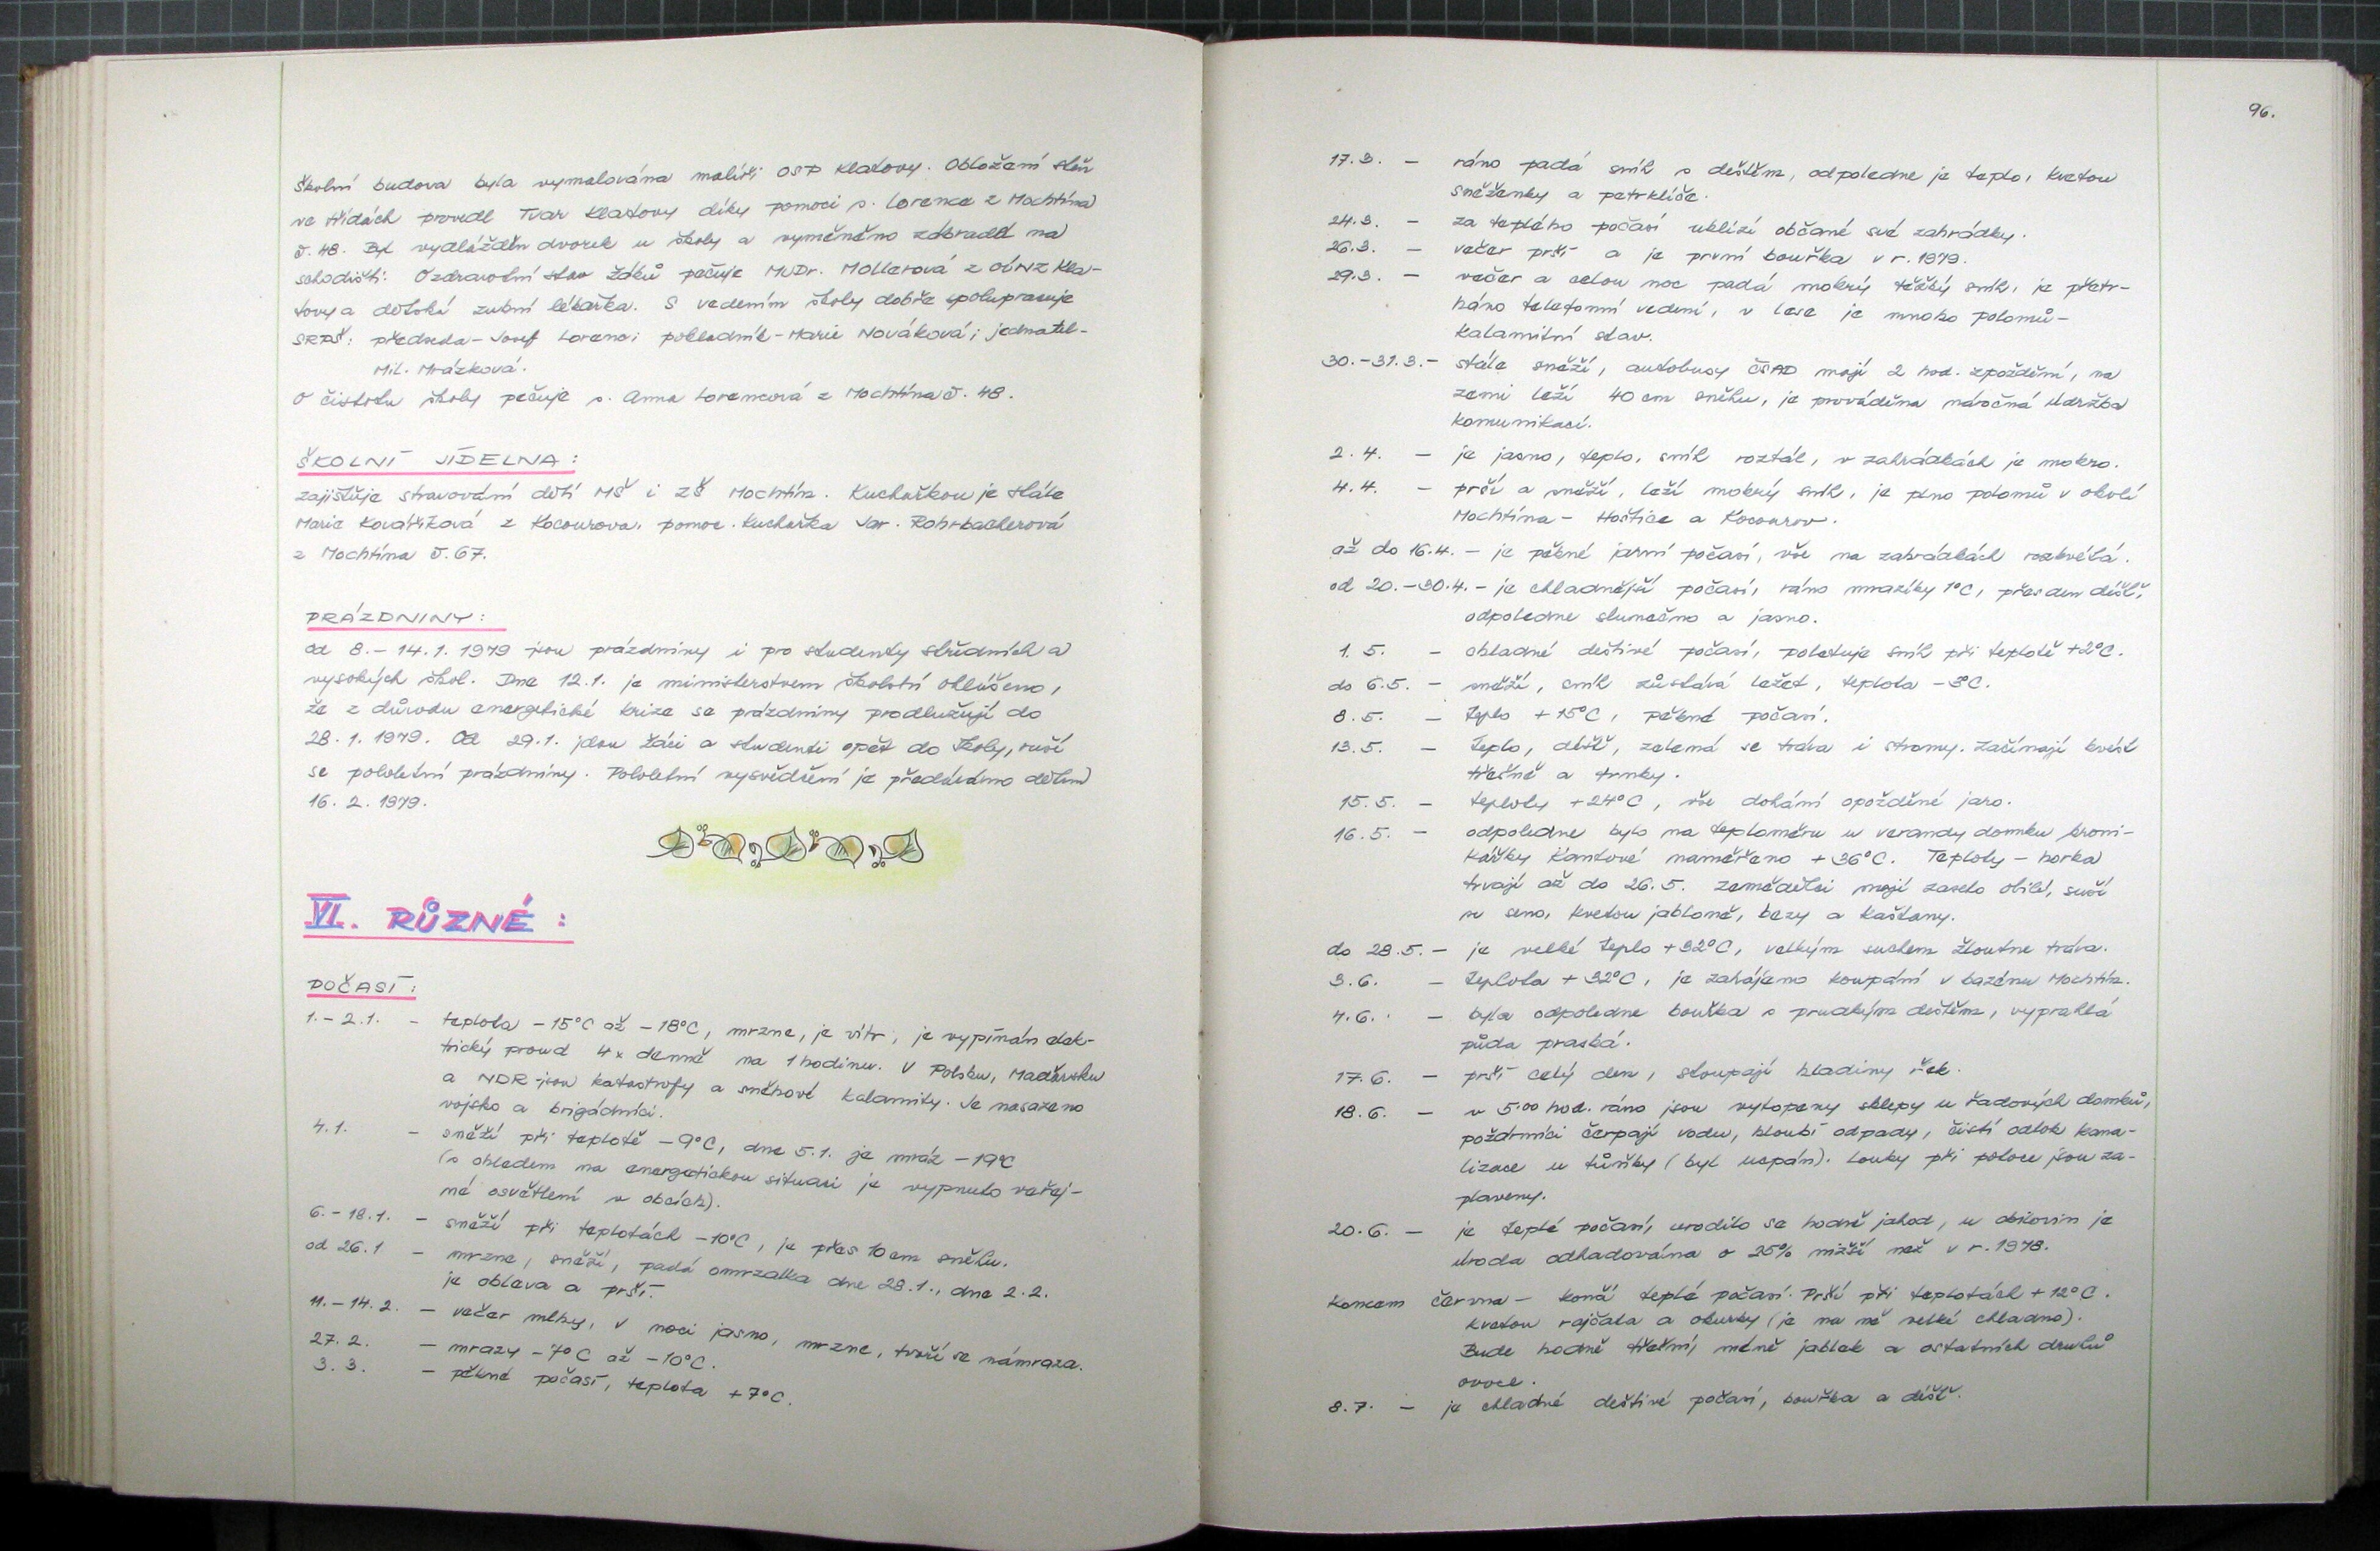 Školní budova byla vymalována malíři OSP Klatovy. Obložení stěn
ve třídách provedl Tvar Klatovy díky pomoci s. Lorence z Mochtína
č. 48. Byl vydlážděn dvorek u školy a vyměněno zábradlí na
schodišti. O zdravotní stav žáků pečuje MUDr. Mollerová z OÚNZ Kla-
tovy a dětská zubní lékařka. S vedením školy dobře spolupracuje
SRPŠ: předseda - Josef Lorenc; pokladník - Marie Nováková; jednatel-
Mil. Mrázková.
O čistotu školy pečuje s. Anna Lorencová z Mochtína č. 48.
ŠKOLNÍ JÍDELNA:
zajišťuje stravování dětí MŠ i ZŠ Mochtín. Kuchařkou je stále
Marie Kováříková z Kocourova, pomoc. kuchařka Jar. Rohrbacherová
z Mochtína č. 67.
PRÁZDNINY:
od 8. - 14. 1. 1979 jsou prázdniny i pro studenty středních a
vysokých škol. Dne 12.1. je ministerstvem školství ohlášeno,
že z důvodu energetické krize se prázdniny prodlužují do
28. 1. 1979. Od 29.1. jdou žáci a studenti opět do školy, ruší
se pololetní prázdniny. Pololetní vysvědčení je předáváno dětem
16. 2. 1979.
VI. RŮZNÉ:
POČASÍ:
1. - 2.1. - teplota -15°C až -18°C, mrzne, je vítr, je vypínán elek-
trický proud 4x denně na 1 hodinu. V Polsku, Maďarsku
a NDR jsou katastrofy a sněhové kalamity. Je nasazeno
vojsko a brigádníci.
4.1. - sněží při teplotě -9°C, dne 5.1. je mráz -19°C
(s ohledem na energetickou situaci je vypnuto veřej-
né osvětlení v obcích).
6. - 18.1. - sněží při teplotách -10°C, je přes 10 cm sněhu.
od 26.1 - mrzne, sněží, padá omrzalka dne 28.1., dne 2.2.
je obleva a prší.
11. - 14. 2. - večer mlhy, v noci jasno, mrzne, tvoří se námraza.
27. 2. - mrazy -7°C až -10°C.
3. 3. - pěkné počasí, teplota +7°C.
96.
17.3. - ráno padá sníh s deštěm, odpoledne je teplo, kvetou
sněženky a petrklíče.
24.3. - za teplého počasí uklízí občané své zahrádky.
26.3. - večer prší a je první bouřka v r. 1979.
29.3. - večer a celou noc padá mokrý těžký sníh, je přetr-
háno telefonní vedení, v lese je mnoho polomů -
kalamitní stav.
30. - 31.3. - stále sněží, autobusy ČSAD mají 2 hod. zpoždění, na
zemi leží 40 cm sněhu, je prováděna náročná údržba
komunikací.
2. 4. - je jasno, teplo, sníh roztál, v zahrádkách je mokro.
4.4. - prší a sněží, leží mokrý sníh, je plno polomů v okolí
Mochtína - Hoštice a Kocourov.
až do 16.4. - je pěkné jarní počasí, vše na zahrádkách rozkvétá.
od 20. - 30.4. - je chladnější počasí, ráno mrazíky 1°C, přes den déšť,
odpoledne slunečno a jasno.
1. 5. - chladné deštivé počasí, poletuje sníh při teplotě +2°C.
do 6.5. - sněží, sníh zůstává ležet, teplota -3°C.
8.5. - teplo +15°C, pěkné počasí.
13.5. - teplo, déšť, zelená se tráva i stromy. Začínají kvést
třešně a trnky.
15.5. - teploty +24°C, vše dohání opožděné jaro.
16.5. - odpoledne bylo na teploměru u verandy domku kroni-
kářky Kantové naměřeno +36°C. Teploty - horka
trvají až do 26.5. zemědělci mají zaseto obilí, suší
se seno, kvetou jabloně, bezy a kaštany.
do 28.5. - je velké teplo +32°C, velkým suchem žloutne tráva.
3.6. - teplota +32°C, je zahájeno koupání v bazénu Mochtín.
4.6. - byla odpoledne bouřka s prudkým deštěm, vyprahlá
půda praská.
17.6. - prší celý den, stoupají hladiny řek.
18.6. - v 5.00 hod. ráno jsou vytopeny sklepy u řadových domků,
požárníci čerpají vodu, hloubí odpady, čistí odtok kana-
lizace u tůňky (byl ucpán). Louky při potoce jsou za-
plaveny.
20.6. - je teplé počasí, urodilo se hodně jahod, u obilovin je
úroda odhadována o 25% nižší než v r. 1978.
Koncem června - končí teplé počasí. Prší při teplotách +12°C.
kvetou rajčata a okurky (je na ně velké chladno).
Bude hodně třešní, méně jablek a ostatních druhů
ovoce.
8.7. - je chladné deštivé počasí, bouřka a déšť.